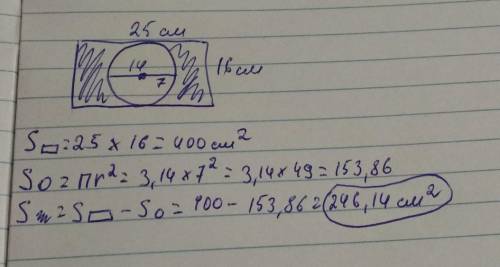 25 см
14
7
16 см
S▭ = 25 × 16 = 400 см²
SО = πr² = 3,14 × 7² = 3,14 × 49 = 153,86
Sш = S▭ - SО = 400 - 153,86 = 246,14 см²